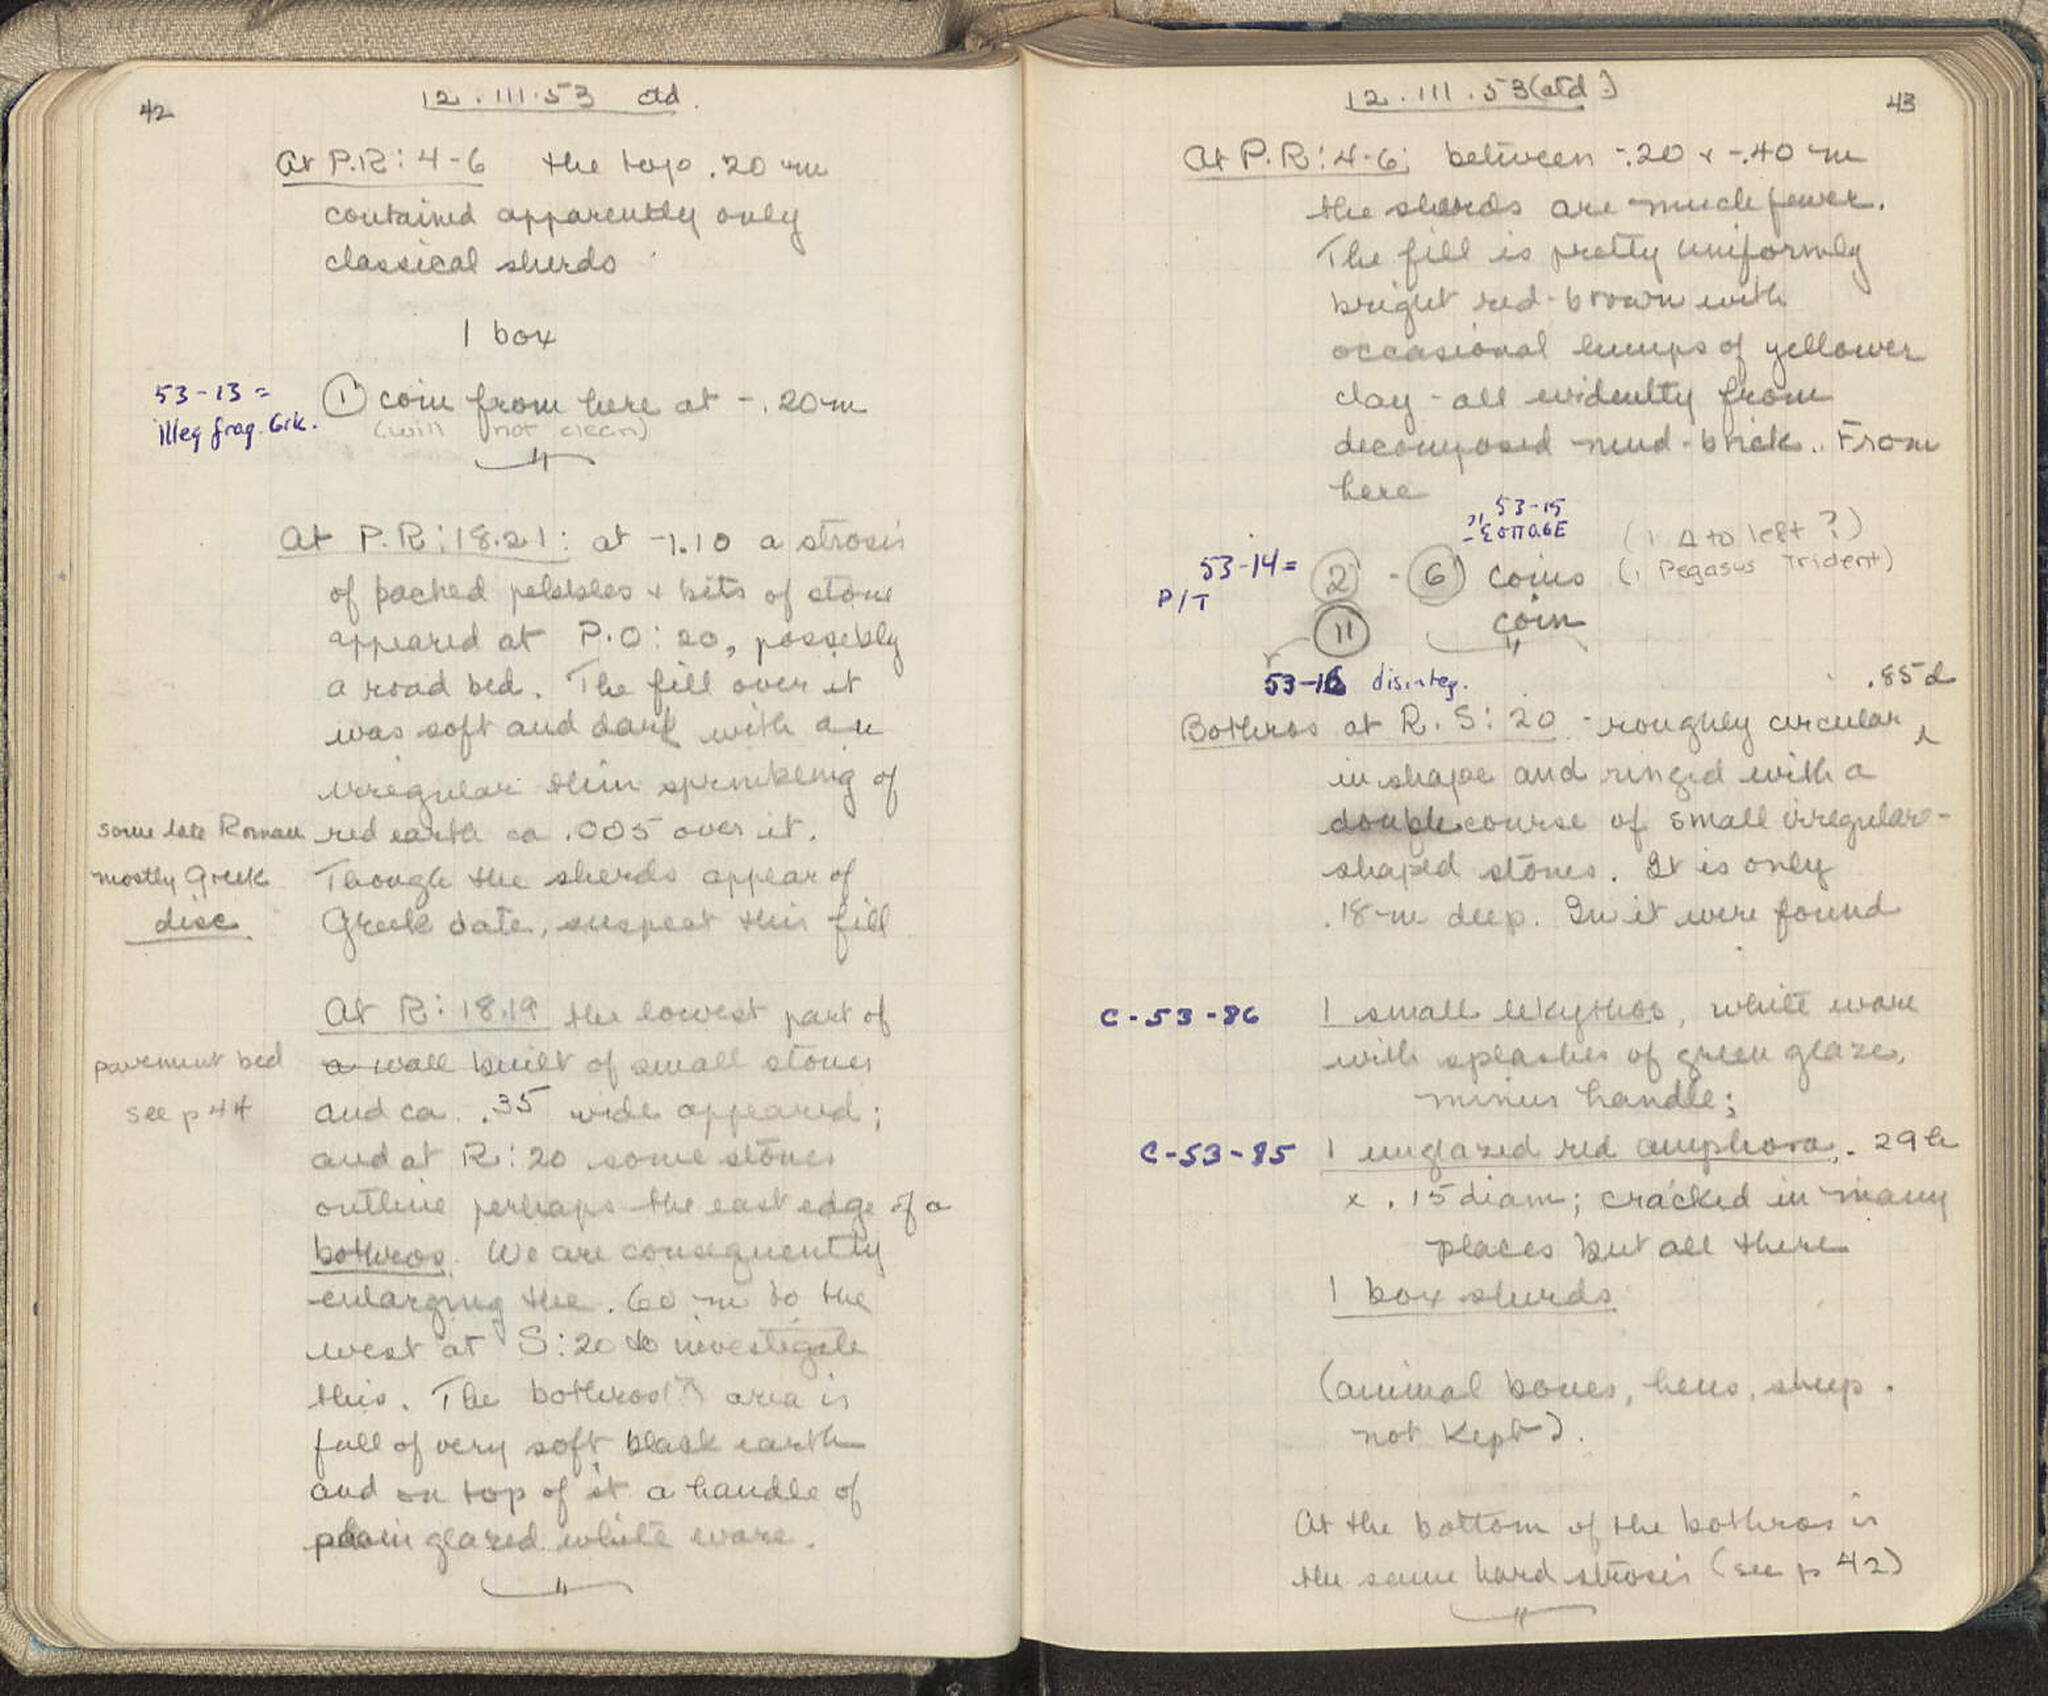 42
12.III.53 ctd.
At P.R:4-6 the top .20 m
contained apparently only
classical sherds
1 box
53-13 =
illeg frag. Grk.
① coin from here at -.20m
(will not clean)
At P.R:18.21: at -1.10 a strosis
of packed pebbles + bits of stone
appeared at P.O:20, possibly
a road bed. The fill over it
was soft and dark with an
irregular thin sprinkling of
red earth ca .005 over it.
Though the sherds appear of
Greek date, suspect this fill
some late Roman
mostly Greek
disc
At R:18.19 the lowest part of
a wall built of small stones
and ca. .35 wide appeared;
and at R:20 some stones
outline perhaps the east edge of a
bothros. We are consequently
enlarging the .60 m to the
west at S:20 to investigate
this. The bothros(?) area is
full of very soft black earth
and on top of it a handle of
plain glazed white ware.
pavement bed
see p 44
12.III.53(ctd.)
43
At P.R:4-6: between -.20 + -.40 m
the sherds are much fewer.
The fill is pretty uniformly
bright red-brown with
occasional lumps of yellower
clay - all evidently from
decomposed mud-brick.. From
here
53-15
53-14 =
P/T
② - ⑥ coins
(1 Δ to left ?)
(1 Pegasus Trident)
⑪ coin
53-16 disinteg.
.85 d
Bothros at R.S:20 - roughly circular
in shape and ringed with a
double course of small irregular-
shaped stones. It is only
.18 m deep. In it were found
C-53-86
1 small lekythos, white ware
with splashes of green glaze,
minus handle;
C-53-85
1 unglazed red amphora, .29 h
x .15 diam; cracked in many
places but all there
1 box sherds
(animal bones, hens, sheep.
not kept).
At the bottom of the bothros is
the same hard strosis (see p 42)